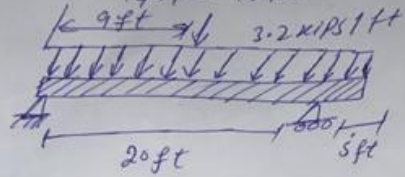 9ft
3.2 KIPS / ft
20ft
5ft